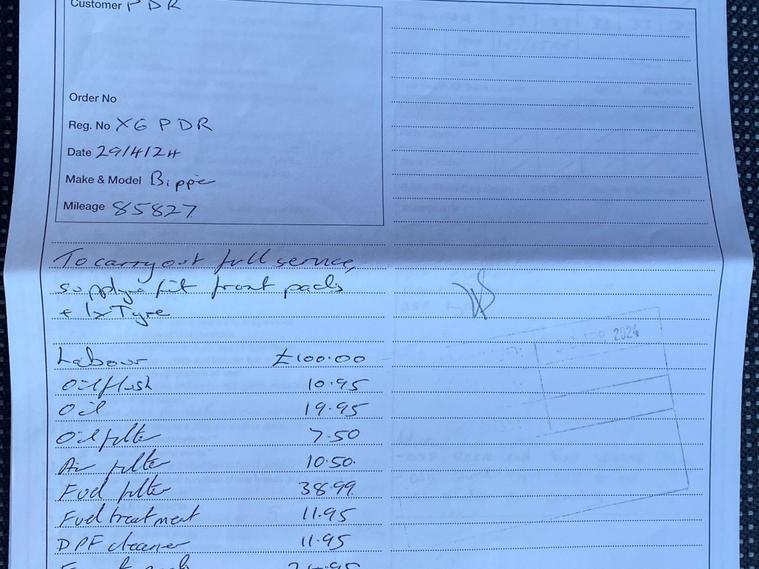 Customer PDR
Order No
Reg. No X6 PDR
Date 29/4/24
Make & Model Bipper
Mileage 85827
To carry out full service,
supply & fit front pads
+ 1x Tyre
Labour £100.00
Oil flush 10.95
Oil 19.95
Oil filter 7.50
Air filter 10.50
Fuel filter 38.99
Fuel treatment 11.95
DPF cleaner 11.95
2024